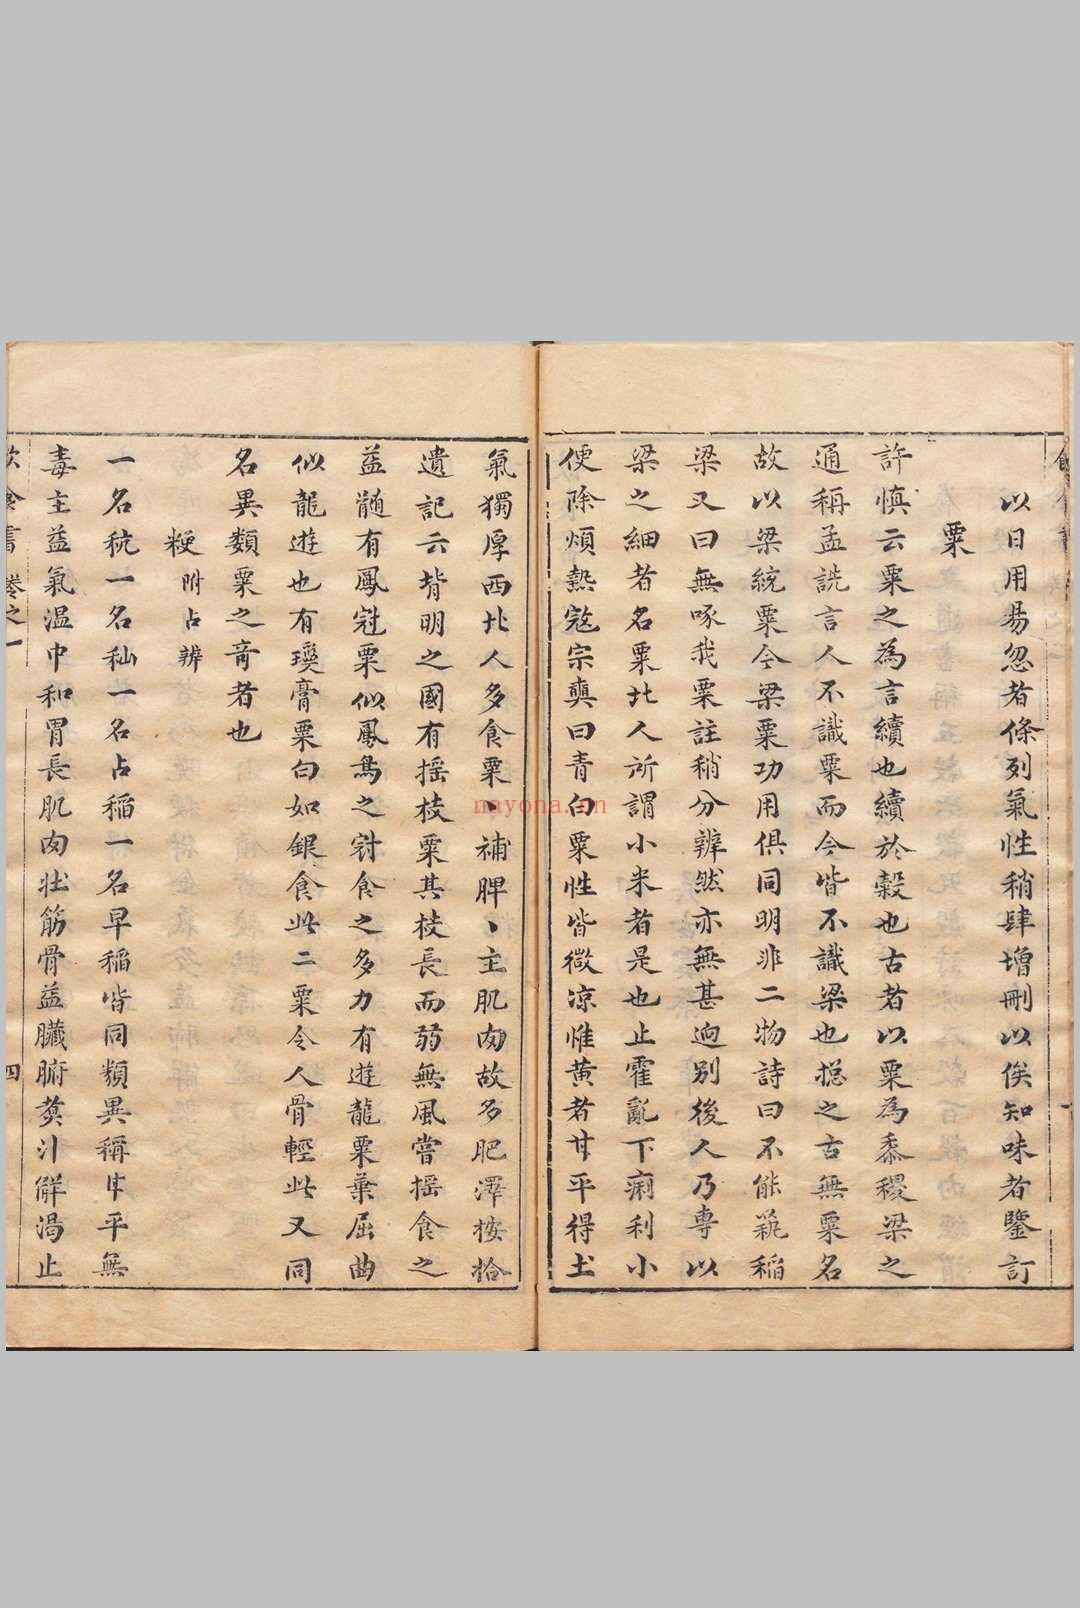 以日用易忽者條列氣性稍肆增刪以俟知味者鑒訂
粟
許慎云粟之為言續也續於穀也古者以粟為黍稷梁之
通稱孟詵言人不識粟而今皆不識梁也揔之古無粟名
故以梁統粟今梁粟功用俱同明非二物詩曰不能蓺稲
梁又曰無啄我粟註稍分辨然亦無甚逈别後人乃專以
梁之細者名粟北人所謂小米者是也止霍亂下痢利小
便除煩熱冦宗奭曰青白粟性皆微凉惟黄者甘平得土
氣獨厚西北人多食粟丶補脾丶主肌肉故多肥澤按拾
遺記云背明之國有揺枝粟其枝長而弱無風嘗揺食之
益髄有鳳冠粟似鳳鳥之冠食之多力有遊龍粟葉屈曲
似龍遊也有瓊膏粟白如銀食此二粟令人骨輕此又同
名異類粟之竒者也
粳 附占辨
一名秔一名秈一名占稲一名早稲皆同類異稱甘平無
毒主益氣温中和胃長肌肉壮筋骨益臟腑煑汁觧渴止
飲食書 卷之一 四
nayona.cn